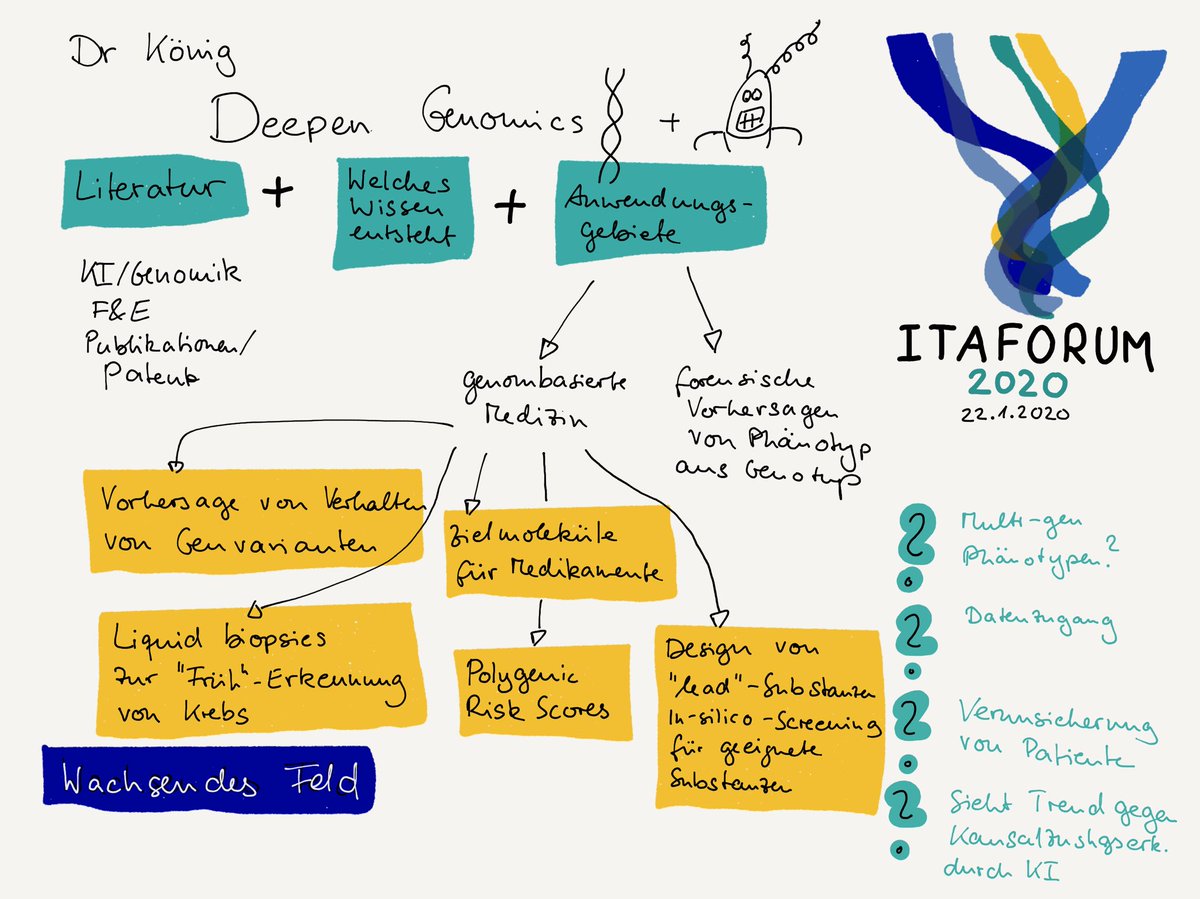 Dr König
Deepen Genomics +
Literatur
+
Welches
Wissen
entsteht
+
Anwendungs-
gebiete
KI/Genomik
F&E
Publikationen/
Patente
genombasierte
Medizin
forensische
Vorhersagen
von Phänotyp
aus Genotyp
Vorhersage von Verhalten
von Genvarianten
Zielmoleküle
für Medikamente
Liquid biopsies
zur "Früh"-Erkennung
von Krebs
Polygenic
Risk Scores
Design von
"lead"-Substanzen
In-silico-Screening
für geeignete
Substanzen
Wachsendes Feld
ITAFORUM
2020
22.1.2020
?
Multi-gen
Phänotypen?
?
Datenzugang
?
Verunsicherung
von Patiente
?
Sieht Trend gegen
durch KI